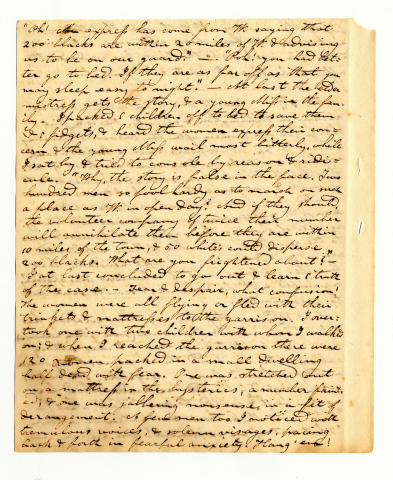 "Oh! An express has come from W. saying that
200 blacks are within 20 miles of W. & advising
us to be on our guard." — "Poh! you had bet-
ter go to bed. If they are as far off as that you
may sleep easy to night." — At last the
mistress gets the story, & a young Miss in the fam-
ily. I packed children off to bed to save them
fidgets, & heard the women express their con-
cern & the young Miss wail most bitterly, while
I sat by & tried to console by reason & ridi-
cule. "Why, the story is false in the face, Two
hundred men so fool hardy as to march on such
a place as W. in open day! And if they should,
the volunteer company of twice their number
will annihilate them before they are within
10 miles of the town, & 50 whites could disperse
200 blacks. What are you frightened about!"
I at last concluded to go out & learn truth
of the case. — Fear & despair, what confusion!
The women were all flying or fled with their
trinkets & mattresses to the garrison. I over-
took one with two children with whom I walked
on; & when I reached the garrison there were
120 women packed in a small dwelling
half dead with fear. One was stretched out
on a mattress in the hysterics, a number faint-
& one was jabbering nonsense in a fit of
derangement. A few men too I noticed with
tremulous voices, & solemn visages, pacing
back & forth in fearful anxiety. Hang 'em!